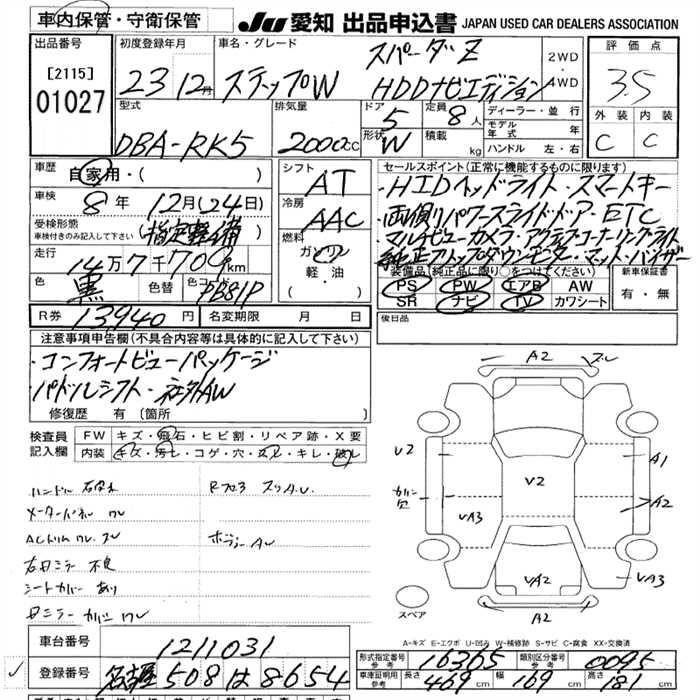 車内保管・守衛保管 JU 愛知 出品申込書 JAPAN USED CAR DEALERS ASSOCIATION
出品番号 初度登録年月 車名・グレード 評価点
[2115] 01027 23 12月 ステップW スパーダZ HDDナビエディション 2WD・4WD 3.5
型式 排気量 ドア 定員 ディーラー・並行 外装 内装
DBA-RK5 2000cc 5 8人 モデル年式 年 C C
形状 W 積載 kg ハンドル 左・右
車歴 自家用・( ) シフト AT セールスポイント(正常に機能するものに限ります)
車検 8年 12月(24日) 冷房 AAC ・HIDヘッドライト・スマートキー
受検形態 車検付きのみ記入して下さい (指定整備) ・両側パワースライドドア・ETC
走行 14万7千709km 燃料 ガソリン 軽・油 ( ) ・マルチビューカメラ・アクティブコーナーリングライト
色 黒 色コード PB81P ・純正フリップダウンモニター・マット・バイザー
装備品(純正品に限り○をつけてください) 新車保証書
PS PW エアB AW 有・無
SR ナビ TV カワシート
R券 13940円 名変期限 月 日 後日品
注意事項申告欄(不具合内容等は具体的に記入して下さい)
・コンフォートビューパッケージ
・パドルシフト・社外AW
修復歴 有 (箇所 )
検査員記入欄 FW キズ・飛石・ヒビ割・リペア跡・X要
内装 キズ・汚レ・コゲ・穴・スレ・キレ・破レ
A2 スレ
V2 A1
V2
カバー欠 VA3 A2
VA2 VA3
A2
スペア
メーターパネル ワレ
ボデー AU
右ミラー 不良
シートカバー あり
A-キズ E-エクボ U-凹み W-補修跡 S-サビ C-腐食 XX-交換済
車台番号 1211031 形式指定番号 参考 16365 類別区分番号 参考 0095
登録番号 名古屋 508 は 8654 車庫証明用 参考 長さ 469cm 幅 169cm 高さ 181cm